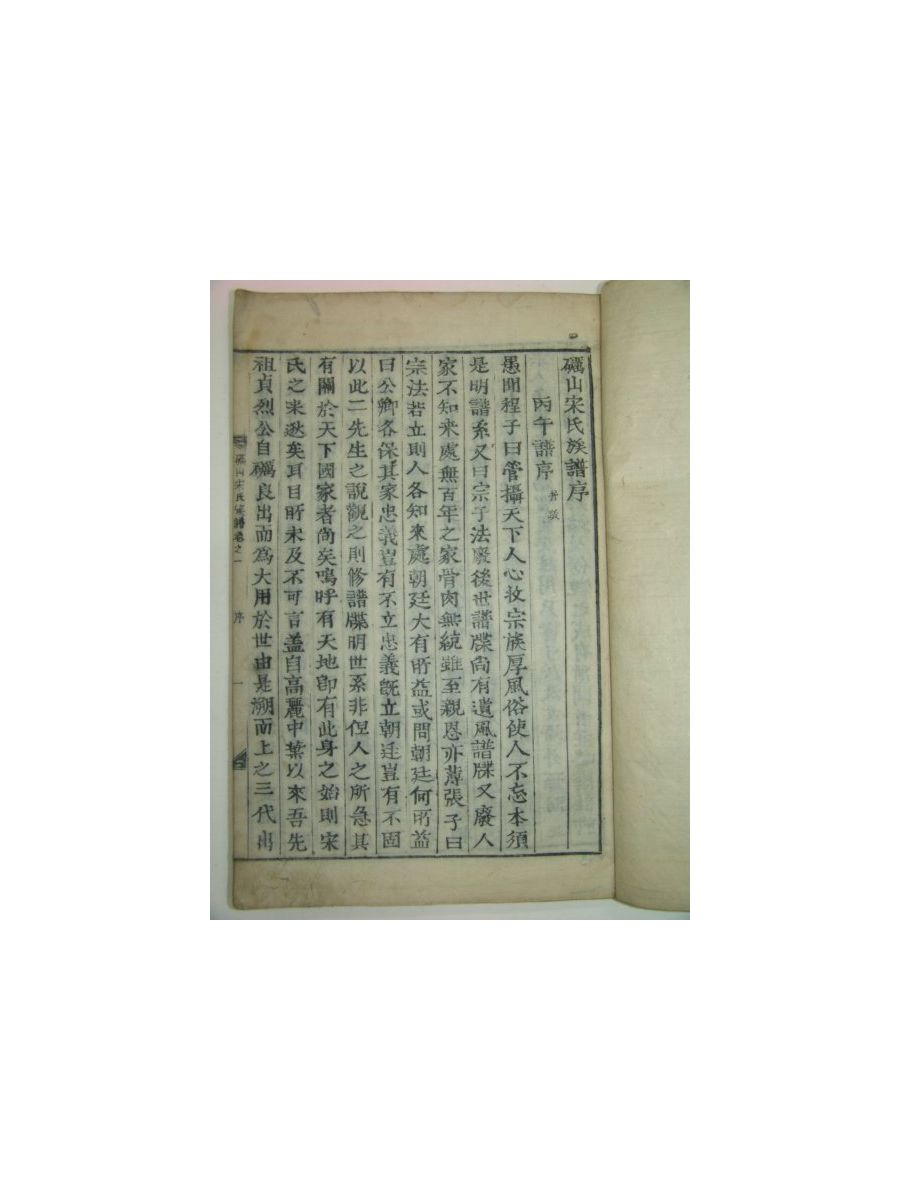 礪山宋氏族譜序
丙午譜序
愚聞程子曰管攝天下人心收宗族厚風俗使人不忘本須
是明譜系又曰宗子法廢後世譜牒尚有遺風譜牒又廢人
家不知來處無百年之家骨肉無統雖至親恩亦薄張子曰
宗法若立則人各知來處朝廷大有所益或問朝廷何所益
曰公卿各保其家忠義豈有不立忠義旣立朝廷豈有不固
以此二先生之說觀之則修譜牒明世系非但人之所急其
有關於天下國家者尚矣嗚呼有天地卽有此身之始則宋
氏之來逖矣耳目所未及不可言盖自高麗中葉以來吾先
祖貞烈公自礪良出而爲大用於世由是溯而上之三代出
礪山宋氏族譜卷之一 序 一